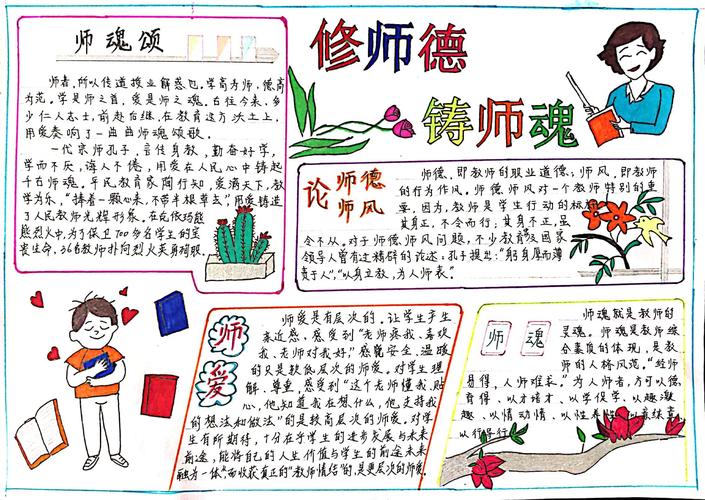 师魂颂
师者,所以传道授业解惑也,学高为师,德高
为范。学是师之首,爱是师之魂。古往今来,多
少仁人志士,前赴后继,在教育这方沃土上,
用爱奏响了一曲曲师魂颂歌。
一代宗师孔子,言传身教,勤奋好学,
学而不厌,诲人不倦,用爱在人民心中铸起
千古师魂。平民教育家陶行知,爱满天下,教
学为乐,“捧着一颗心来,不带半根草去”,用爱铸造
了人民教师光辉形象。在克依玛庭
庭烈火中,为了保卫700多名学生的宝
贵生命,36名教师扑向烈火英勇殉职。
修师德
铸师魂
论师德
师风
师德,即教师的职业道德;师风,即教师
的行为作风。师德师风对一个教师特别的重
要,因为,教师是学生行动的标榜
其身正,不令而行;其身不正,虽
令不从。对于师德师风问题,不少教育及国家
领导人曾有过精辟的论述:孔子提出:“躬身厚而薄
责于人”,“以身立教,为人师表”。
师爱
师爱是有层次的。让学生产生
亲近感,感受到“老师疼我、喜欢
我、老师对我好”感觉安全、温暖
的只是较低层次的师爱。对学生理
解、尊重,感受到“这个老师懂我,贴
心,他知道我在想什么,他支持我
的想法和做法”的是较高层次的师爱。对学
生有所期待,十分在乎学生的进步发展与未来
前途,能将自己的人生价值与学生的前途未来
融为一体,而收获真正的“教师情结”的,是更层次的师爱。
师魂
师魂就是教师的
灵魂。师魂是教师综
合素质的体现,是教
师的人格风范。“经师
易得,人师难求。”为人师者,方可以德
育得、以才培才、以学促学、以趣激
趣、以情动情、以性养性、以意练意、
以行导行。